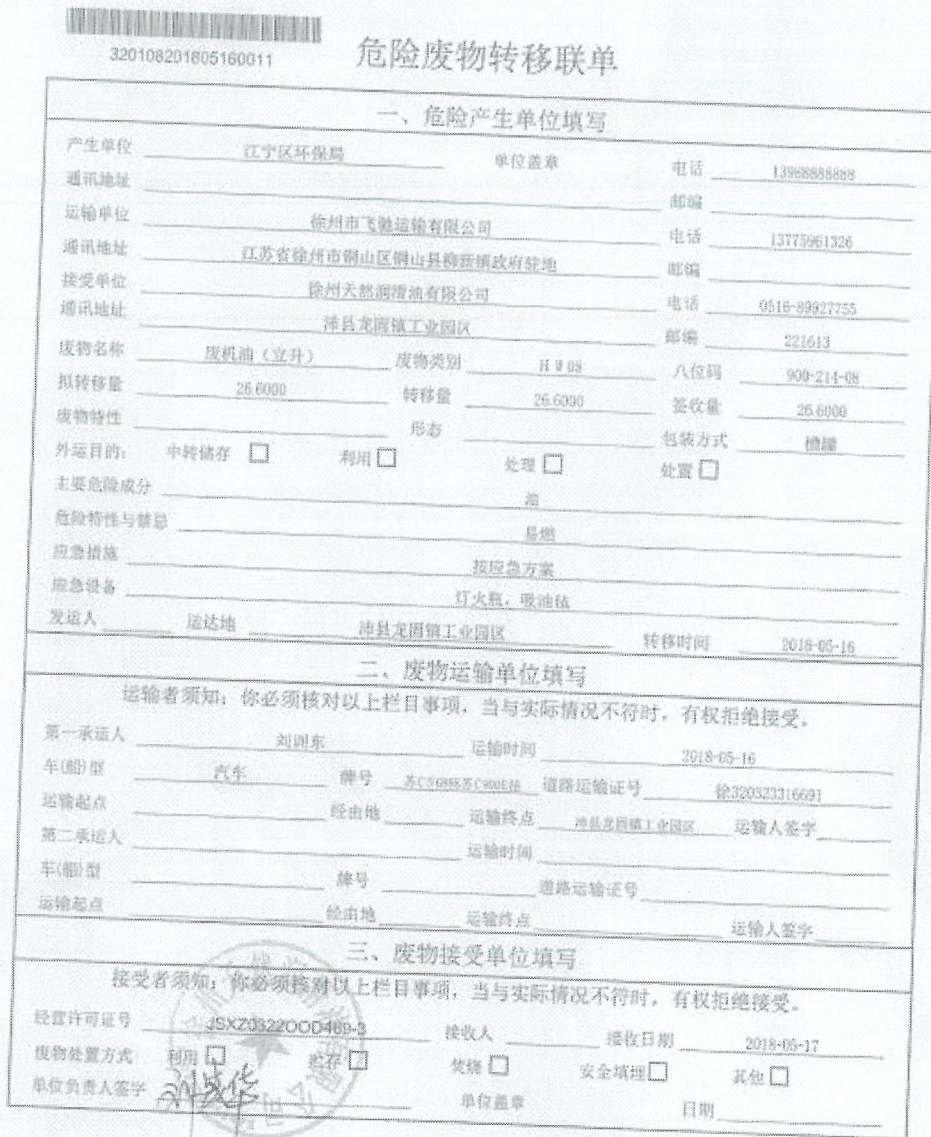 320108201805160011
危险废物转移联单
一、危险产生单位填写
产生单位 江宁区环保局 单位盖章 电话 13988888888
通讯地址 邮编
运输单位 徐州市飞驰运输有限公司 电话 13775961326
通讯地址 江苏省徐州市铜山区铜山县柳新镇政府驻地 邮编
接受单位 徐州天然润滑油有限公司 电话 0516-89927755
通讯地址 沛县龙固镇工业园区 邮编 221613
废物名称 废机油（立升） 废物类别 HW08 八位码 900-214-08
拟转移量 26.6000 转移量 26.6000 签收量 26.6000
废物特性 形态 包装方式 槽罐
外运目的： 中转储存 □ 利用 □ 处理 □ 处置 □
主要危险成分 油
危险特性与禁忌 易燃
应急措施 按应急方案
应急设备 灯火瓶，吸油毡
发运人 运达地 沛县龙固镇工业园区 转移时间 2018-05-16
二、废物运输单位填写
运输者须知：你必须核对以上栏目事项，当与实际情况不符时，有权拒绝接受。
第一承运人 刘国东 运输时间 2018-05-16
车(船)型 汽车 牌号 道路运输证号 徐320323316691
运输起点 经由地 运输终点 沛县龙固镇工业园区 运输人签字
第二承运人 运输时间
车(船)型 牌号 道路运输证号
运输起点 经由地 运输终点 运输人签字
三、废物接受单位填写
接受者须知：你必须核对以上栏目事项，当与实际情况不符时，有权拒绝接受。
经营许可证号 JSXZ0322OOD469-3 接收人 接收日期 2018-05-17
废物处置方式 利用 □ 贮存 □ 焚烧 □ 安全填埋 □ 其他 □
单位负责人签字 单位盖章 日期